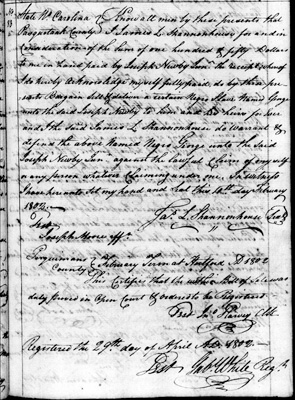 State No Carolina } Know all men by these presents that
Pasquotank County } I James L Shannonhouse for and in
Consideration of the Sum of one hundred & fifty Dollars
to me in hand paid by Joseph Newby Senr the receipt whereof
I do hereby acknowledge myself fully paid, do by these pre
sents Bargain Sell & deliver a certain Negro Slave Named George
unto the said Joseph Newby to him and his heirs for ever
and I the said James L Shannonhouse do Warrant &
defend the above Named Negro George unto the Said
Joseph Newby Senr against the lawful Claim of myself
any person whatever Claiming under me. In witness
I have hereunto Set my hand and Seal this 10th day February
1802
Jas L Shannonhouse Seal
Test
Joseph Moore affr
Perquimans } February Term at Hertford AD 1802
County }
This Certifies that the within Bill of Sale was
duly proved in Open Court & ordered to be Registered
Test Harvey Clk
Registered the 29th day of April AD 1802
Test White Regr